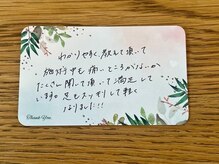 わかりやすく教えて頂いて
施術中も痛いところがないか
たくさん聞いて頂いて満足して
います。足もスッキリして軽く
なりました!!!
Thank You